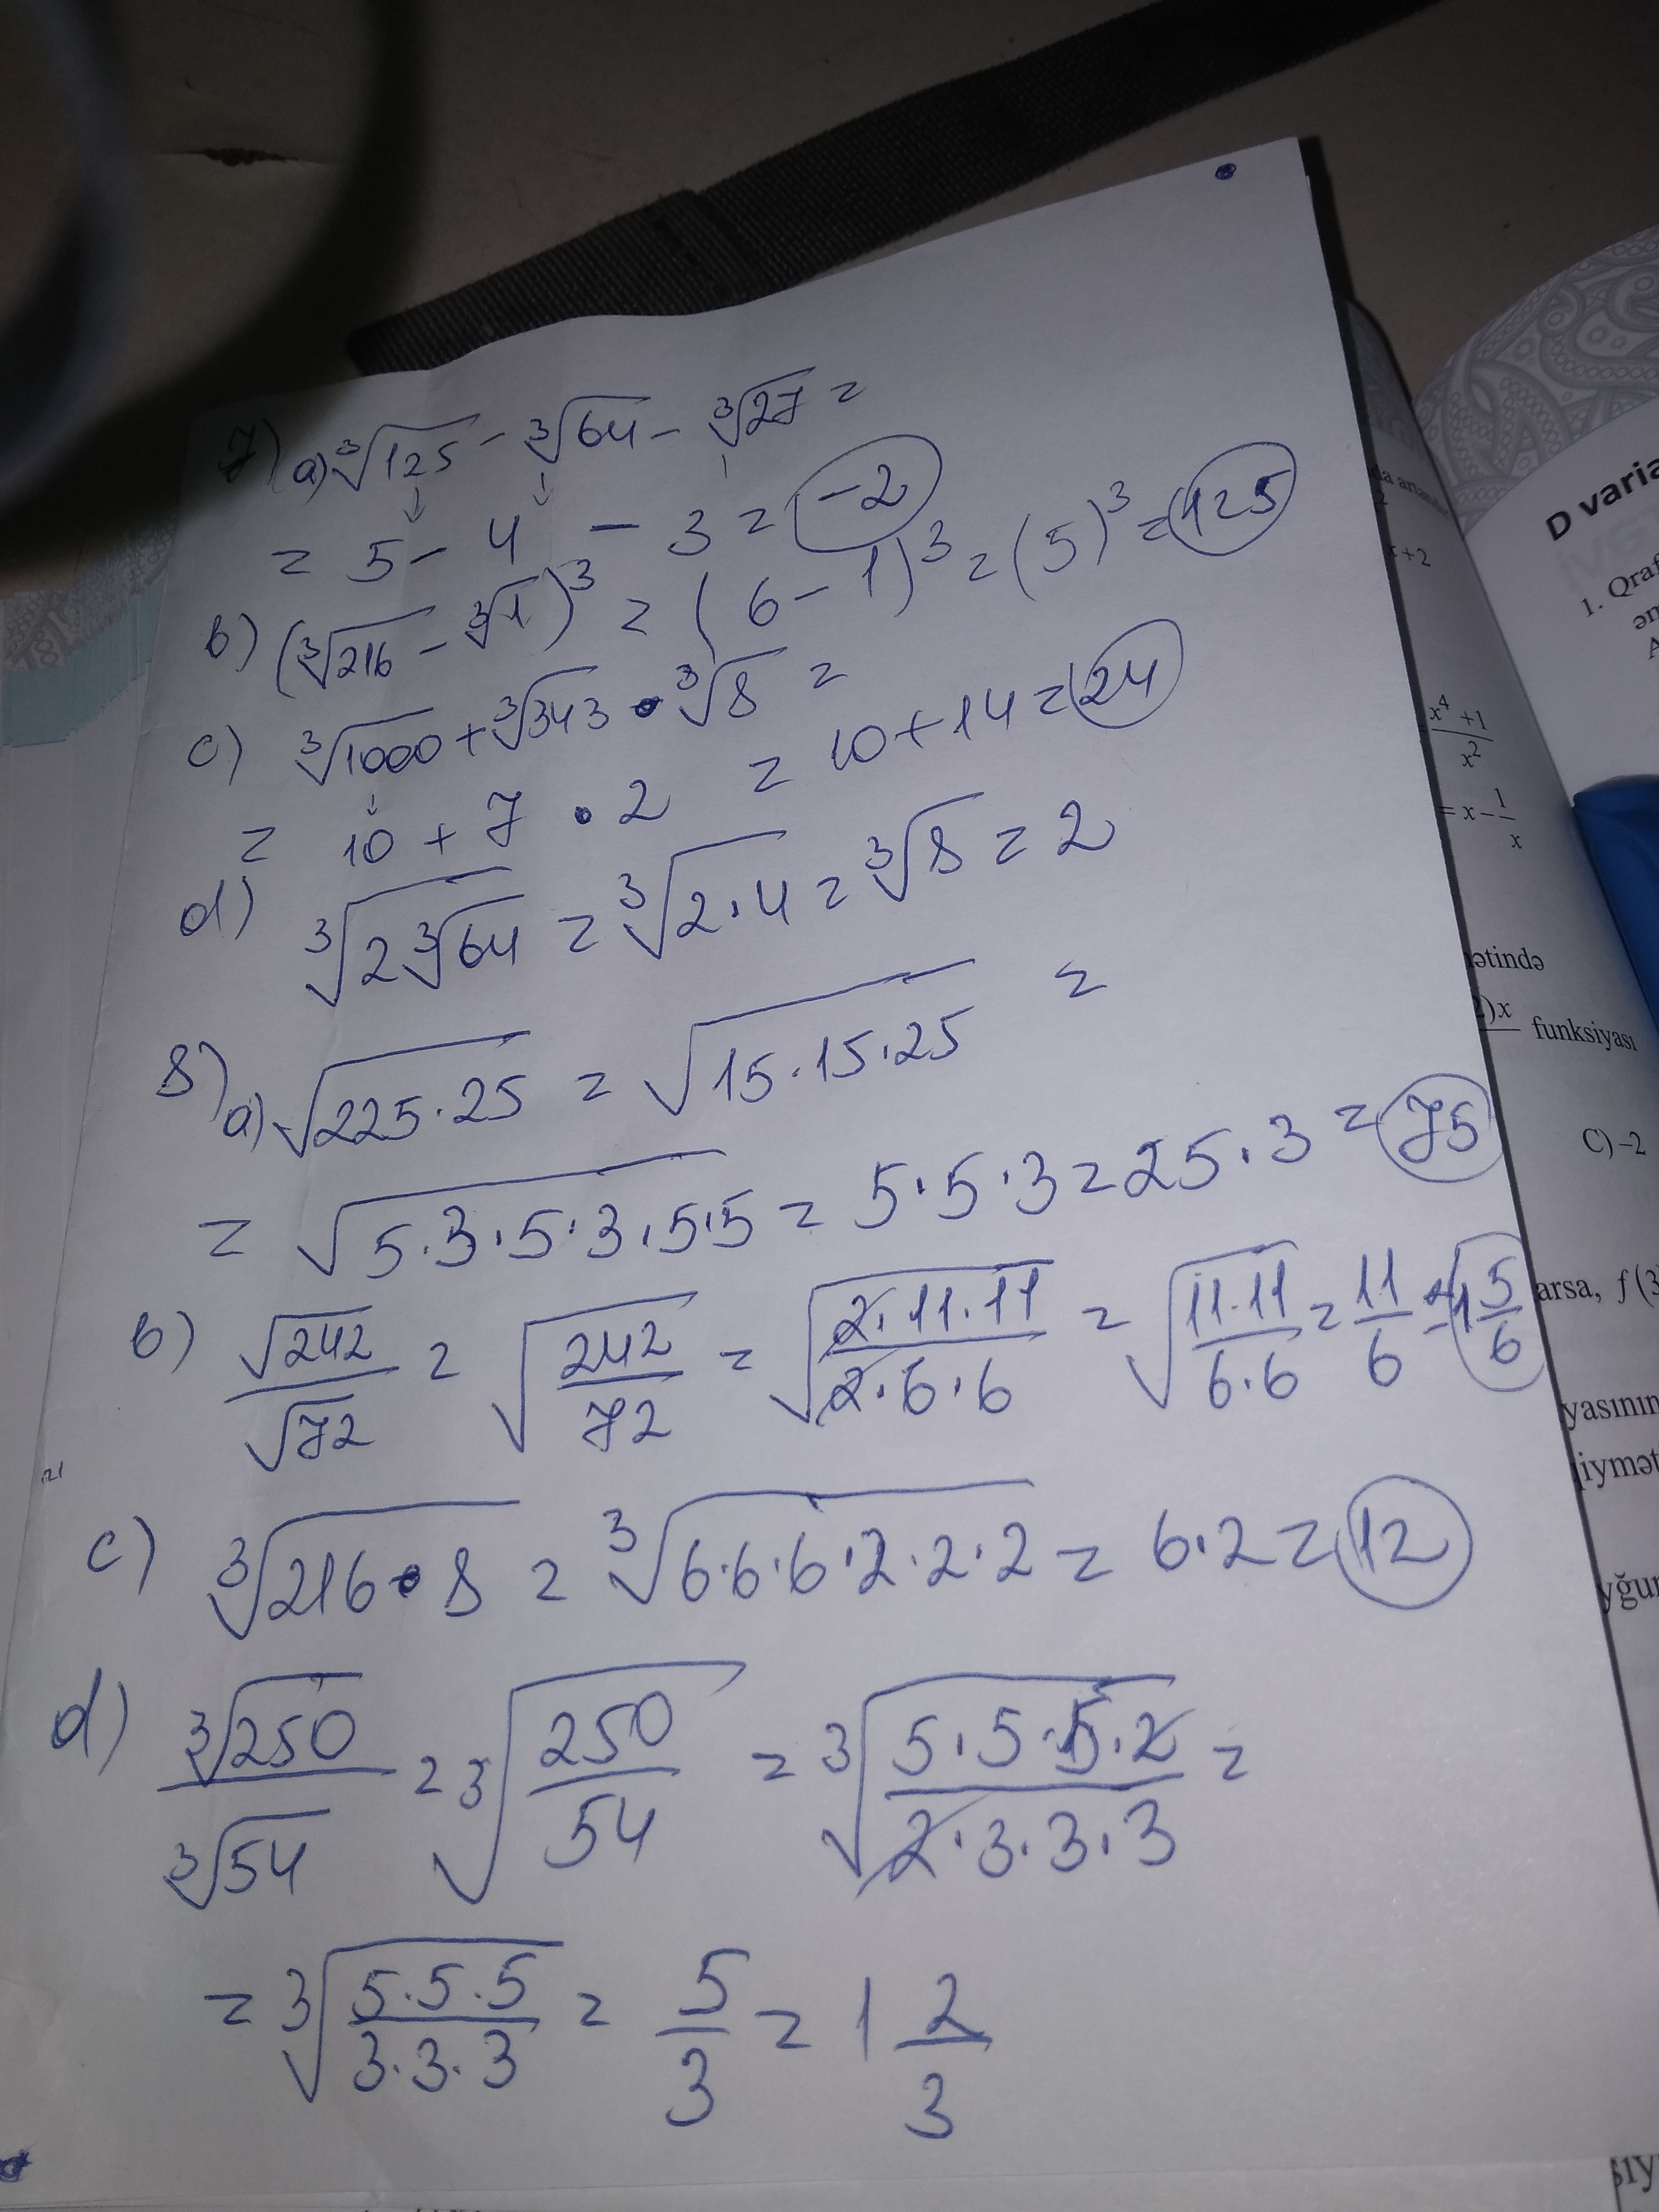 7) a) ∛125 - ∛64 - ∛27 =
= 5 - 4 - 3 = -2
b) (∛216 - ∛1)³ = (6 - 1)³ = (5)³ = 125
c) ∛1000 + ∛343 • ∛8 =
= 10 + 7 • 2 = 10 + 14 = 24
d) ∛(2∛64) = ∛(2·4) = ∛8 = 2
8) a) √(225·25) = √(15·15·25) =
= √(5·3·5·3·5·5) = 5·5·3 = 25·3 = 75
b) √242/√72 = √(242/72) = √(2·11·11/2·6·6) = √(11·11/6·6) = 11/6 = 1 5/6
c) ∛(216•8) = ∛(6·6·6·2·2·2) = 6·2 = 12
d) ∛250/∛54 = ∛(250/54) = ∛(5·5·5·2/2·3·3·3) =
= ∛(5·5·5/3·3·3) = 5/3 = 1 2/3
D varia
1. Qraf
ən
A
x+2
x⁴+1/x²
= x - 1/x
ətində
2)x funksiyası
C) –2
arsa, f(3
yasının
iymət
yğur